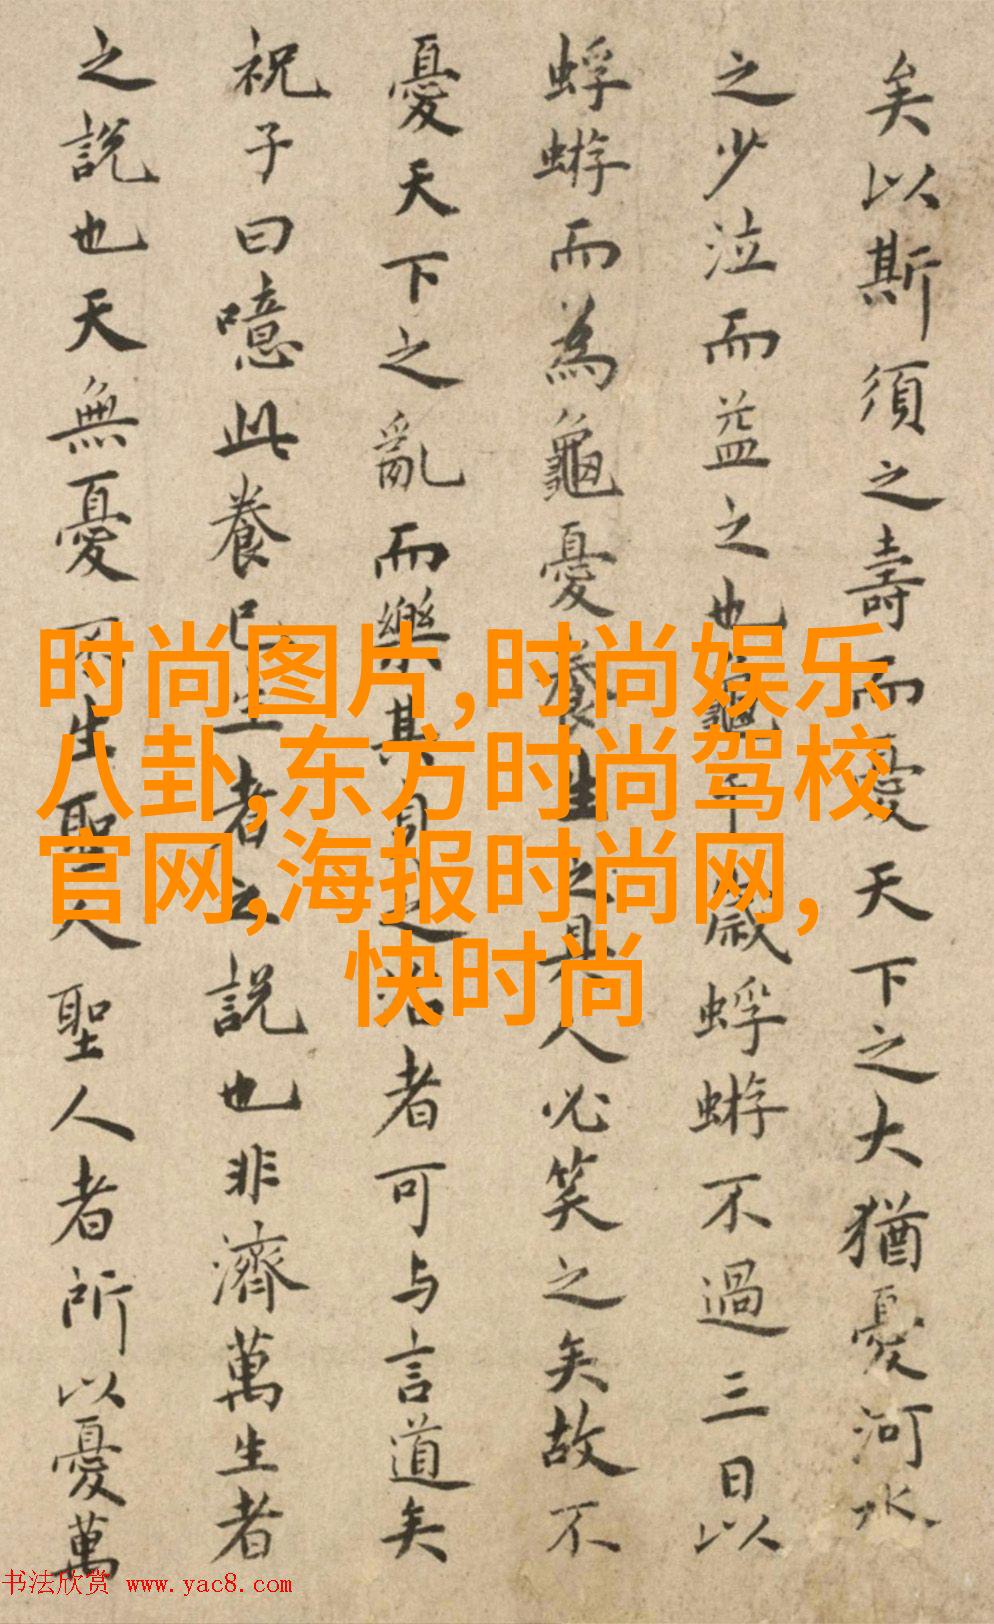 矣以斯須之壽而憂天下之大猶憂河水
之少泣而益之也龜千歲蜉蝣不過三日以
蜉蝣而為龜憂養生之具人必笑之矣故不
憂天下之亂而樂其身之治者可与言道矣
祝子曰噫此養已生者之説也非濟萬生者
之説也天無憂不生聖人聖人者所以憂萬
时尚图片,时尚娱乐
八卦,东方时尚驾校
官网,海报时尚网,
快时尚
书法欣赏 www.yac8.com